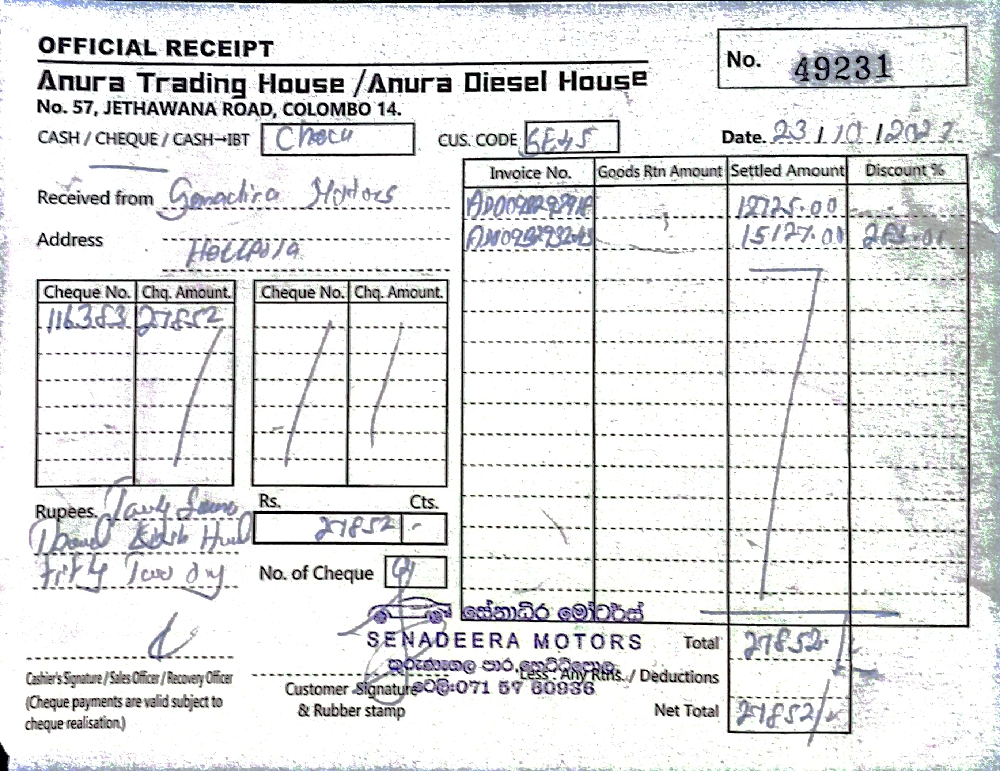 OFFICIAL RECEIPT
No. 49231
Anura Trading House /Anura Diesel House
No. 57, JETHAWANA ROAD, COLOMBO 14.
CASH / CHEQUE / CASH→IBT
CUS. CODE
Date. 23 / 10 /
Received from Motors
Address
Invoice No. Goods Rtn Amount Settled Amount Discount %
12725.00
15127.00
Cheque No. Chq. Amount. Cheque No. Chq. Amount.
116383 27852
Rupees.
Fifty Two
Rs. Cts.
27852 -
No. of Cheque
සේනාධිර මෝටර්ස්
SENADEERA MOTORS
කුරුණෑගල පාර, හෙට්ටිපොල
ටෙලි:071 57 60936
Total 27852
Less : Any Rtns. / Deductions
Net Total 27852/
Cashier's Signature / Sales Officer / Recovery Officer
(Cheque payments are valid subject to
cheque realisation.)
Customer Signature
& Rubber stamp